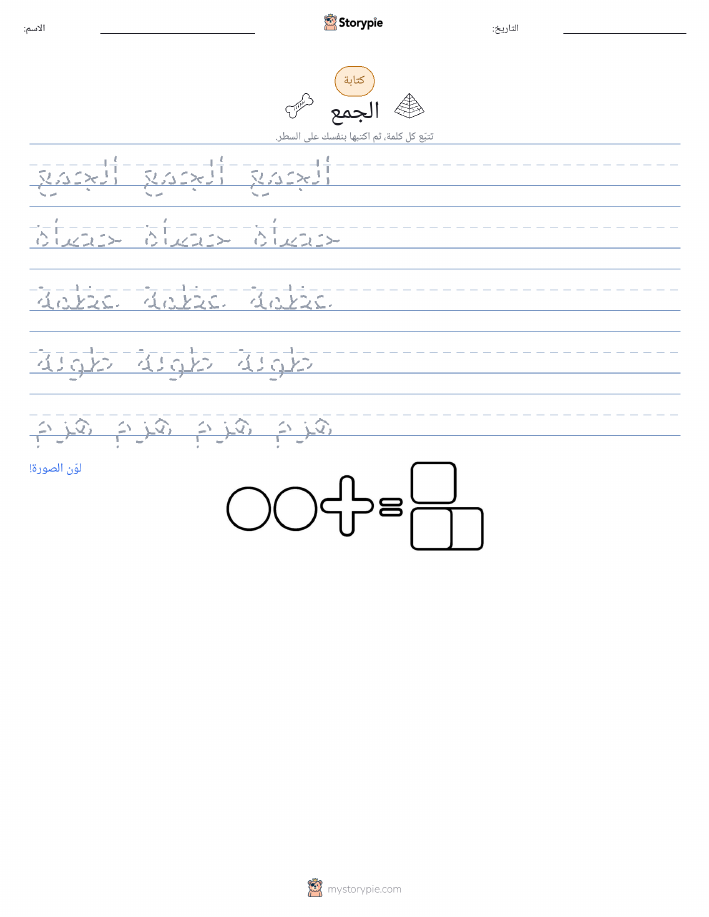 الاسم:
Storypie
التاريخ:
كتابة
الجمع
تتبّع كل كلمة، ثم اكتبها بنفسك على السطر.
الجمع الجمع الجمع
حصاة حصاة حصاة
عظمة عظمة عظمة
طوبة طوبة طوبة
هرم هرم هرم هرم
لوّن الصورة!
+ =
mystorypie.com